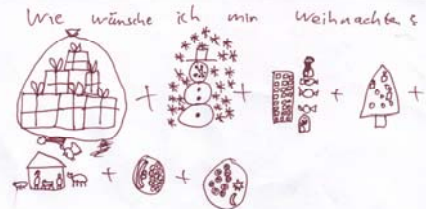 Wie wünsche ich min Weihnachten